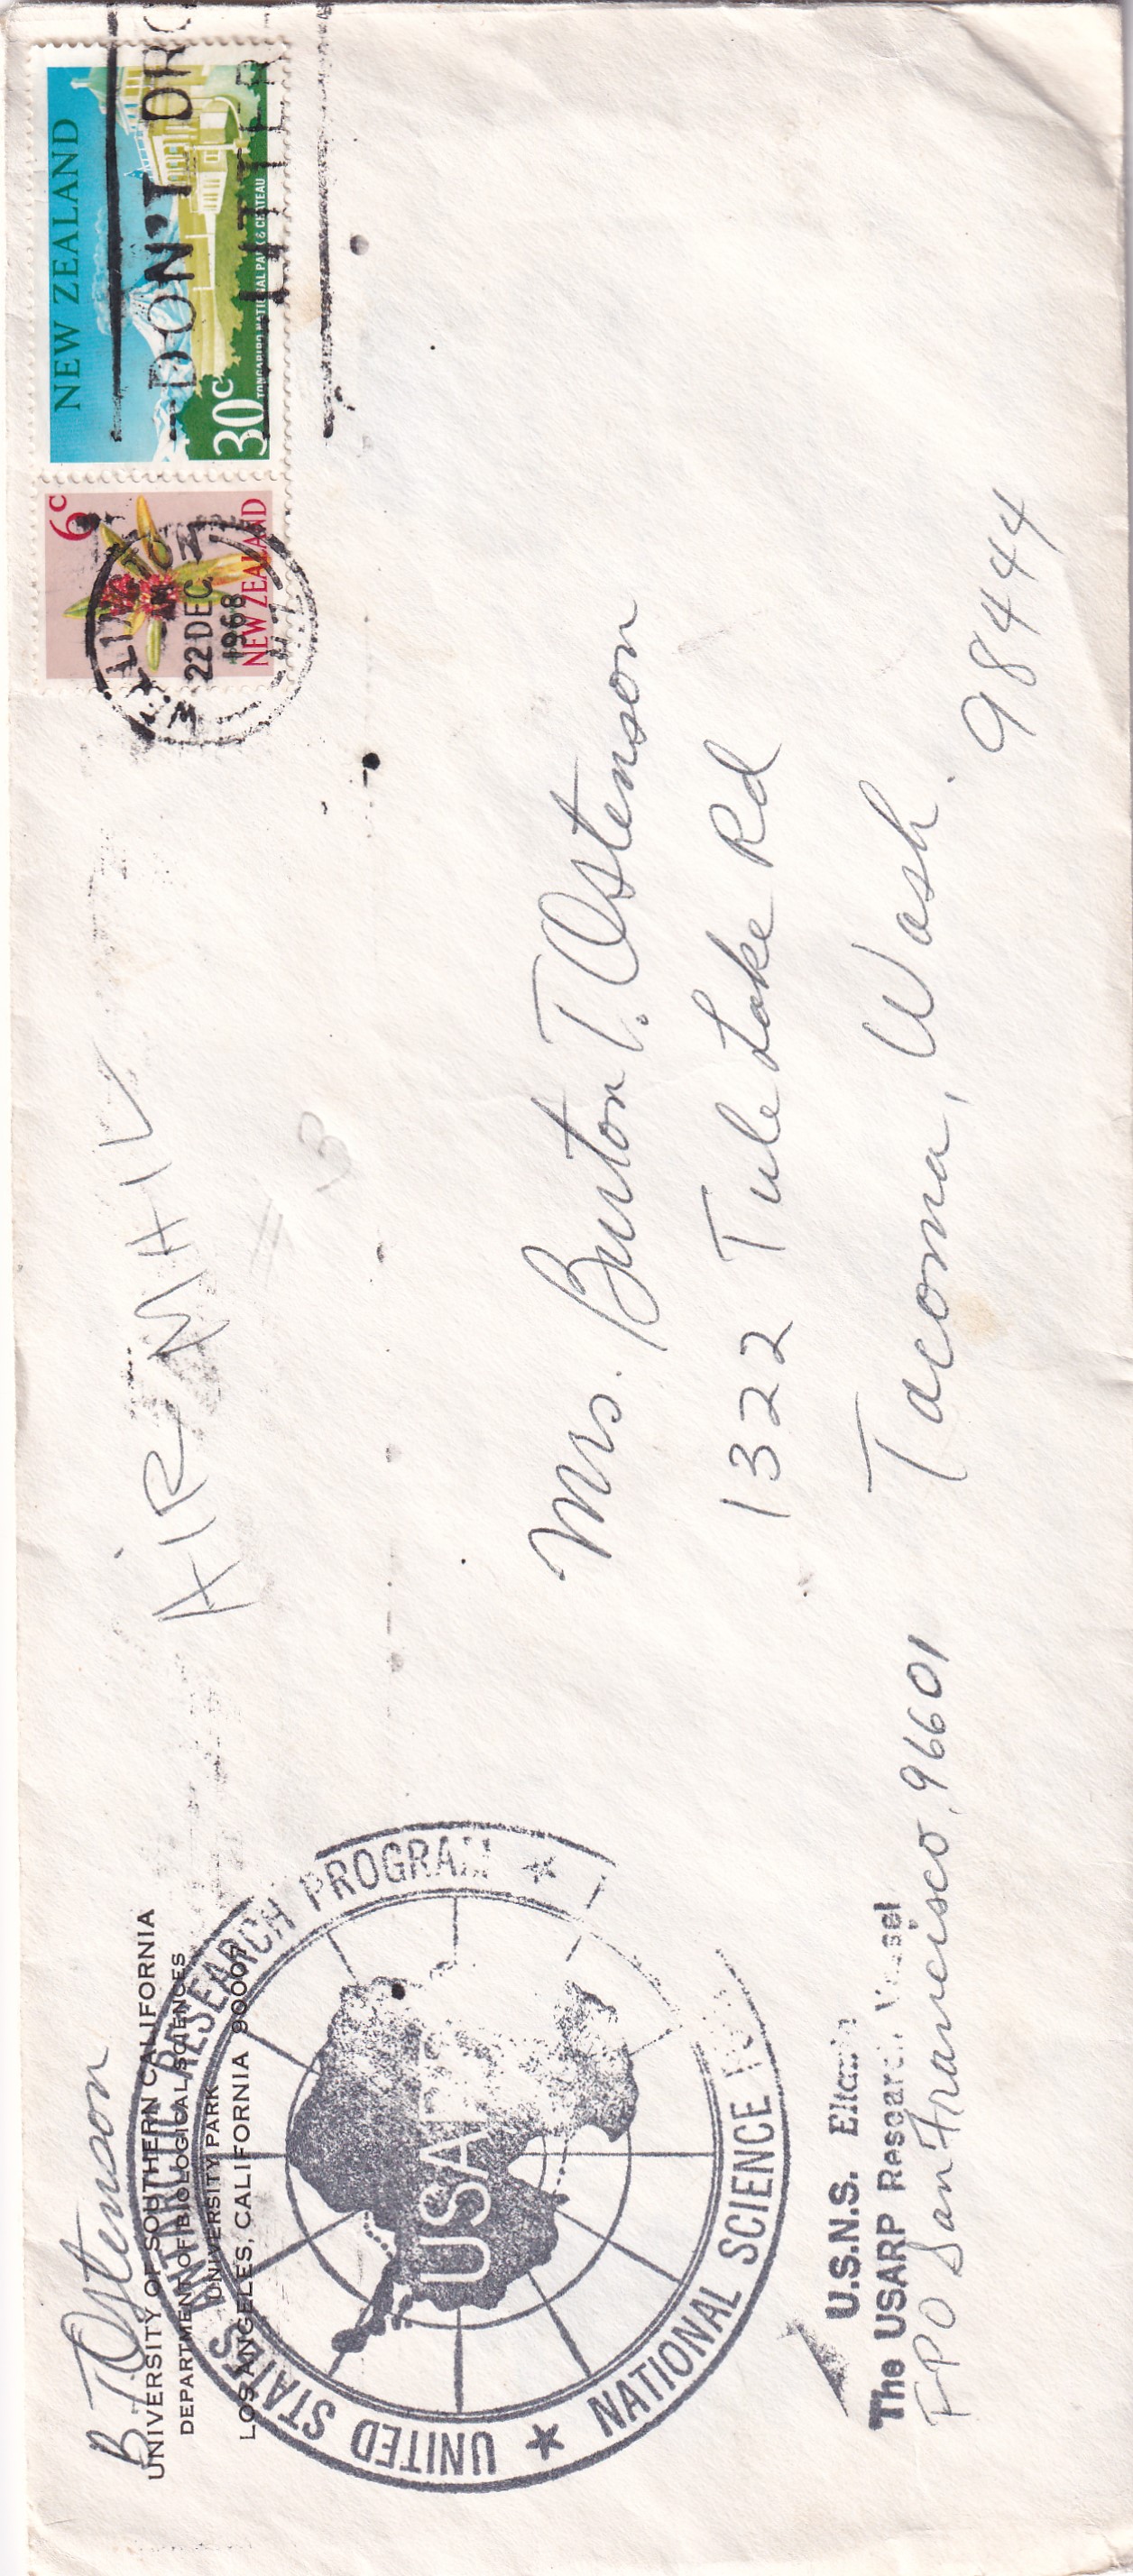 B.T. Ostenson
UNIVERSITY OF SOUTHERN CALIFORNIA
DEPARTMENT OF BIOLOGICAL SCIENCES
UNIVERSITY PARK
LOS ANGELES, CALIFORNIA 90007
UNITED STATES ANTARCTIC RESEARCH PROGRAM
USARP
NATIONAL SCIENCE
AIR MAIL
NEW ZEALAND
30c
TONGARIRO NATIONAL PARK & CHATEAU
6c
NEW ZEALAND
WELLINGTON
22 DEC
1968
N.Z.
DON'T DRO
LITTER
Mrs. Burton T. Ostenson
1322 Tule Lake Rd
Tacoma, Wash. 98444
U.S.N.S. Eltanin
The USARP Research Vessel
FPO San Francisco, 96601